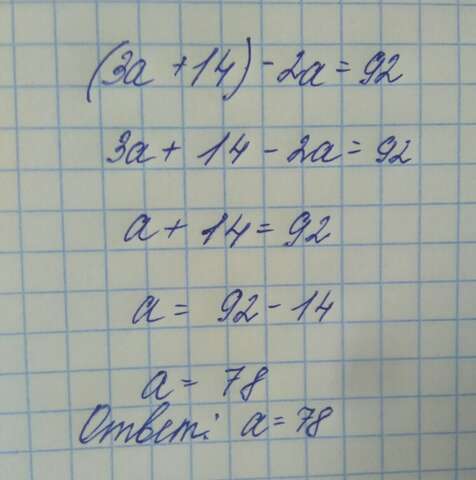 (3a + 14) - 2a = 92
3a + 14 - 2a = 92
a + 14 = 92
a = 92 - 14
a = 78
Ответ: a = 78